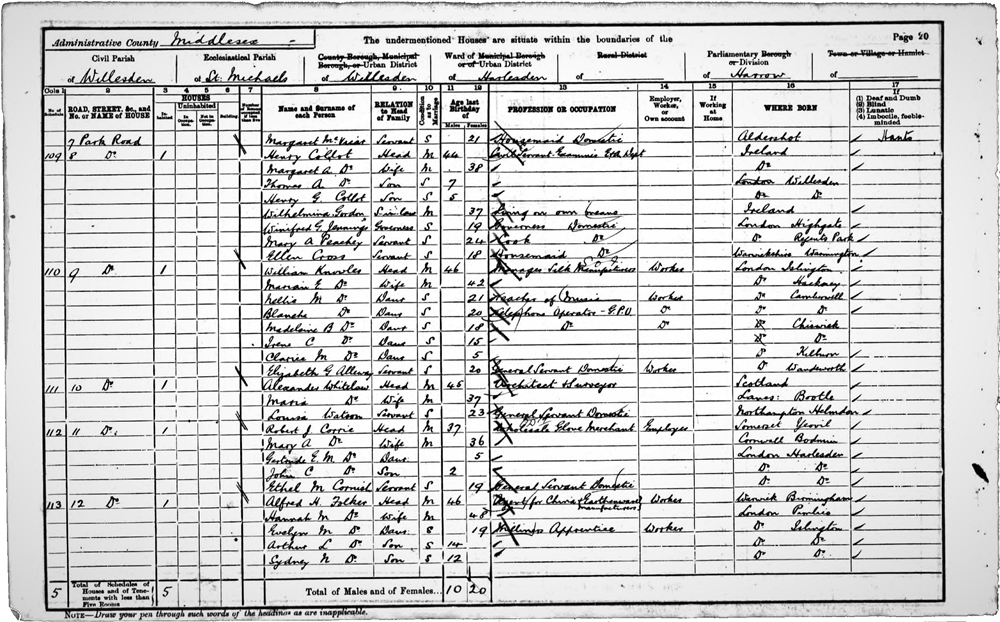 Administrative County Middlesex
The undermentioned Houses are situate within the boundaries of the
Page 20
Civil Parish
of Willesden
Ecclesiastical Parish
of St. Michaels
County Borough, Municipal Borough, or Urban District
of Willesden
Ward of Municipal Borough or of Urban District
of Harlesden
Rural District
of
Parliamentary Borough or Division
of Harrow
Town or Village or Hamlet
of
Cols 1 2 3 4 5 6 7 8 9 10 11 12 13 14 15 16 17
No. of Schedule
ROAD, STREET, &c., and No. or NAME of HOUSE
HOUSES
Inhabited
Uninhabited
In Occupation.
Not in Occupation.
Building
Name and Surname of each Person
RELATION to Head of Family
Condition as to Marriage
Age last Birthday of
Males Females
PROFESSION OR OCCUPATION
Employer, Worker, or Own account
If Working at Home
WHERE BORN
If (1) Deaf and Dumb (2) Blind (3) Lunatic (4) Imbecile, feeble-minded
7 Park Road Margaret Servant S 21 Housemaid Domestic Aldershot Hants
109 8 Do. 1 Henry Collot Head M 44 Civil Servant Dept Ireland
Margaret A. Do Wife M 38 Do
Thomas A Do Son S 7 London Willesden
Henry G. Collot Son S 5 Do Do
Wilhelmina Gordon M 37 Living on own means Ireland
Winifred G. Jennings Governess S 19 Governess Domestic London Highgate
Mary A Peachey Servant S 24 Cook Do Do Regents Park
Ellen Cross Servant S 18 Housemaid Do Warwickshire
110 9 Do. 1 William Knowles Head M 46 Manager Silk Manufacturers Worker London Islington
Marian E Do Wife M 42 Do Hackney
Nellie M Do Daur S 21 Teacher of Music Worker Do Camberwell
Blanche Do Daur S 20 Telephone Operator - G.P.O Do Do Do
Madeleine B Do Daur S 18 Do Do Do Chiswick
Irene C Do Daur S 15 Do Do
Clarice M Do Daur S 5 Do Kilburn
Elizabeth G Servant S 20 General Servant Domestic Worker Do Wandsworth
111 10 Do 1 Alexander Whitelaw Head M 45 Architect & Surveyor Scotland
Maria Do Wife M 37 Lancs: Bootle
Louisa Watson Servant S 23 General Servant Domestic Northampton Helmdon
112 11 Do. 1 Robert J. Corrie Head M 37 Wholesale Glove Merchant Employer Somerset Yeovil
Mary A Do Wife M 36 Cornwall Bodmin
Gertrude E. M. Do Daur 5 London Harlesden
John C Do Son 2 Do Do
Ethel M Cornish Servant S 19 General Servant Domestic Do Do
113 12 Do 1 Alfred H. Head M 46 Agent (for China & Earthenware manufacturers) Worker Warwick Birmingham
Hannah M Do Wife M 48 London Pimlico
Evelyn M Do Daur S 19 Milliners Apprentice Worker Do Islington
Arthur L Do Son S 14 Do Do
Sydney N Do Son S 12 Do Do
5 Total of Schedules of Houses and of Tenements with less than Five Rooms 5
Total of Males and of Females... 10 20
NOTE—Draw your pen through such words of the headings as are inapplicable.